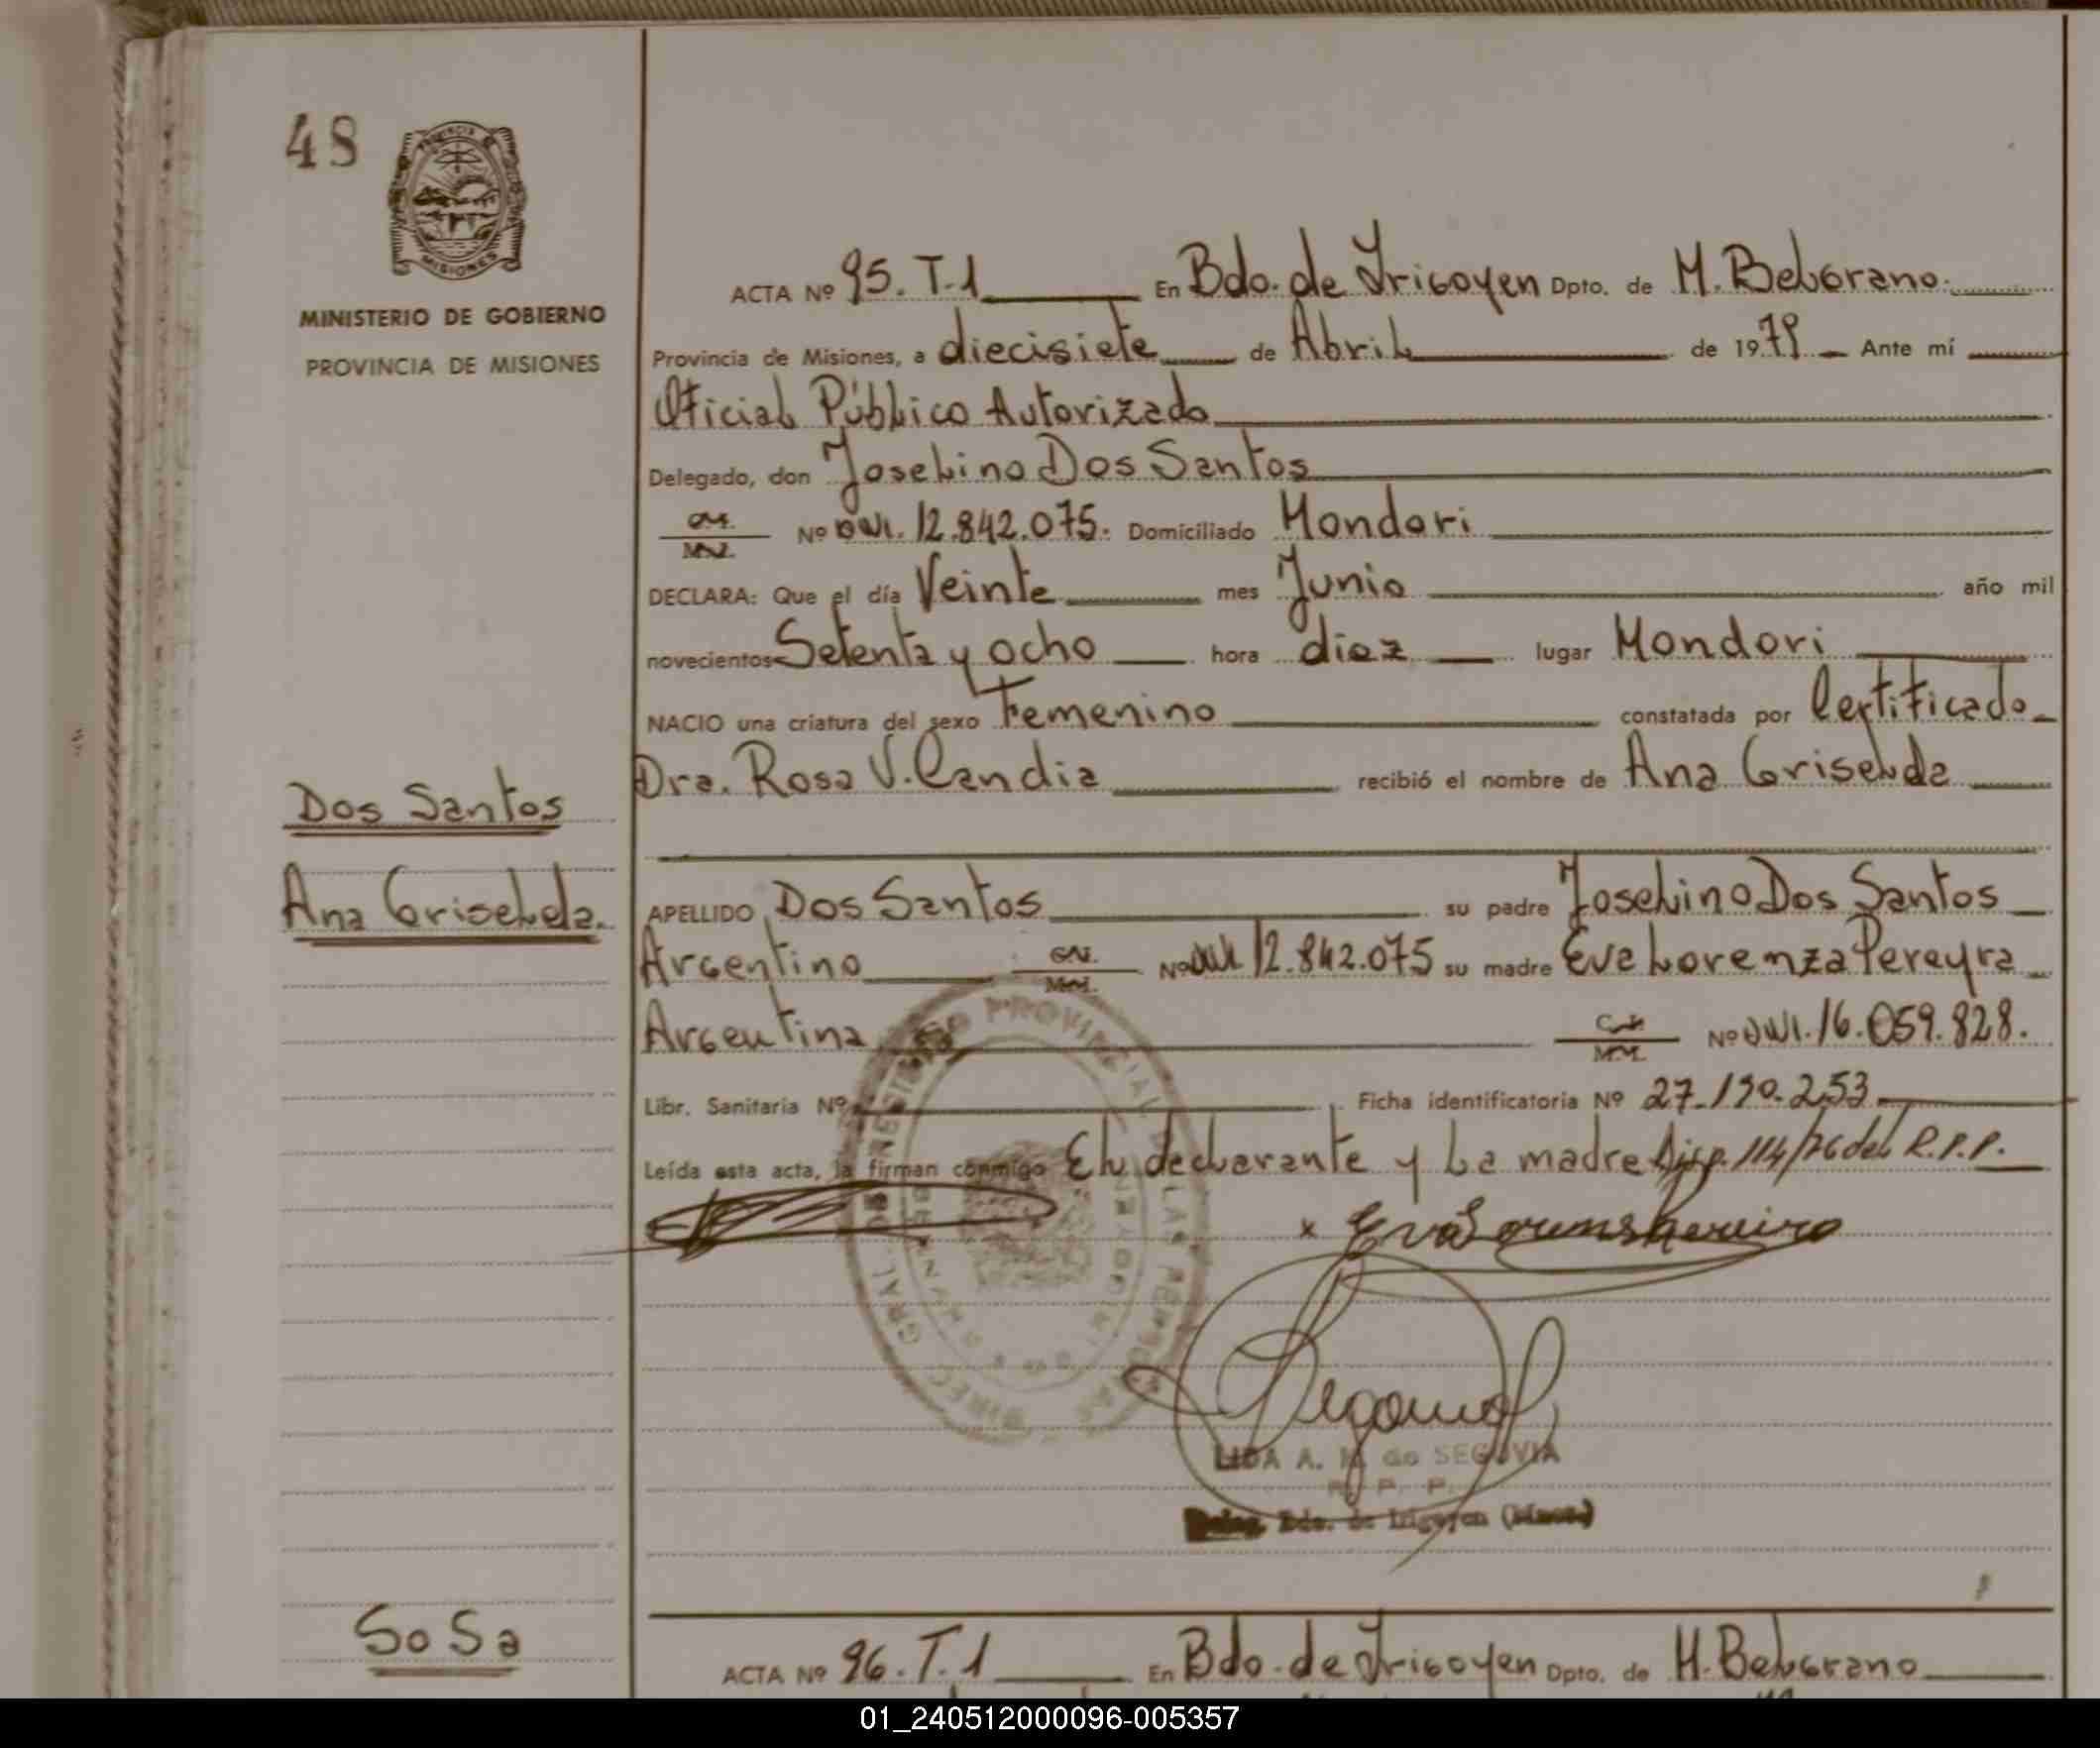 48
PROVINCIA
MISIONES
MINISTERIO DE GOBIERNO
PROVINCIA DE MISIONES
ACTA Nº 95. T.1 En Bdo. de Irigoyen Dpto. de M. Belgrano.
Provincia de Misiones, a diecisiete de Abril de 1979 Ante mí
Oficial Público Autorizado
Delegado, don Joselino Dos Santos
Nº DNI. 12.842.075. Domiciliado Mondori
DECLARA: Que el día Veinte mes Junio año mil
novecientos Setenta y ocho hora diez lugar Mondori
NACIO una criatura del sexo Femenino constatada por Certificado
Dra. Rosa V. Candia recibió el nombre de Ana Griselda
Dos Santos
Ana Griselda.
APELLIDO Dos Santos su padre Joselino Dos Santos
Argentino Nº DNI 12.842.075 su madre Eva Lorenza Pereyra
Argentina Nº DNI. 16.059.828.
Libr. Sanitaria Nº Ficha identificatoria Nº 27.190.253
Leída esta acta, la firman conmigo El declarante y La madre Disp. 114/76 del R.P.P.
x Eva
LIDA A. M. de SEGOVIA
R. P. P.
Deleg. Bdo. de Irigoyen (Mnes.)
SoSa
ACTA Nº 96. T.1 En Bdo. de Irigoyen Dpto. de M. Belgrano
01_240512000096-005357